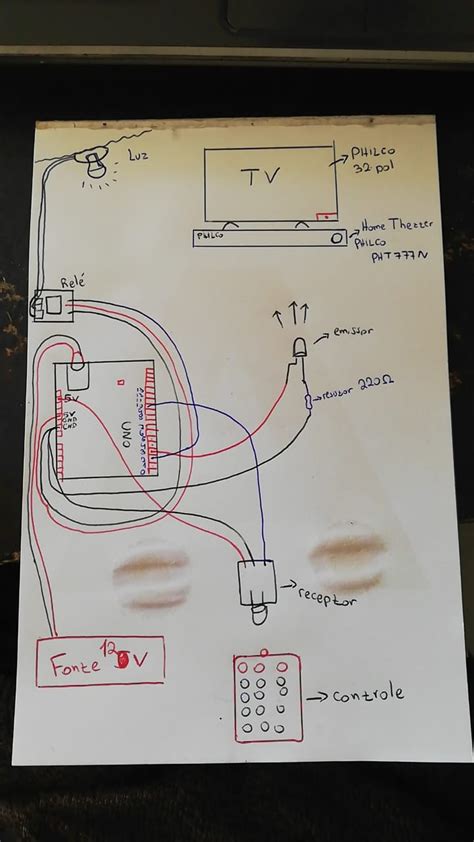 Luz
TV
PHILCO
32 pol
PHILCO
Home Theater
PHILCO
PHT777N
Relé
emissor
resistor 220Ω
5V
5V
GND
GND
UNO
receptor
Fonte 12V
controle